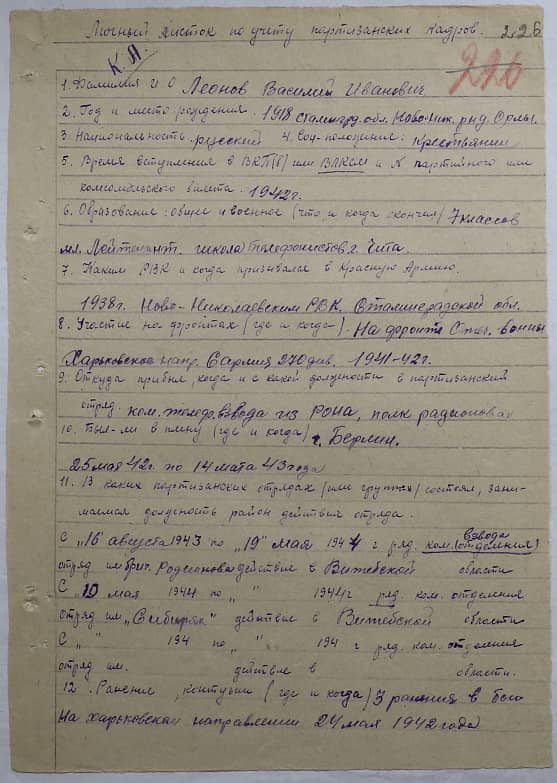 Личный листок по учету партизанских кадров.
226
К.П.
226
1. Фамилия И О Леонов Василий Иванович
2. Год и место рождения. 1918 Сталингр. обл. Ново-Ник. р-на
3. Национальность. русский 4. Соц-положение: крестьянин
5. Время вступления в ВКП(б) или ВЛКСМ и № партийного или
комсомольского билета. 1942г.
6. Образование: общее и военное (что и когда окончил) 7 классов
мл. Лейтенант. школа Телефонистов г. Чита.
7. Каким РВК и когда призывался в Красную Армию.
1938г. Ново-Николаевским РВК. Сталинградской обл.
8. Участие на фронтах (где и когда). На фронте Отеч. войны
Харьковское напр. 6 армия 270 див. 1941-42г.
9. Откуда прибыл, когда и с какой должности в партизанский
отряд. ком. взвода из РОНА, полк
10. Был-ли в плену (где и когда) г. Берлин.
25 мая 42г. по 14 марта 43 года
11. В каких партизанских отрядах (или группах) состоял, зани-
маемая должность район действия отряда.
С „16 августа 1943 по „19" мая 1944 г ряд. ком. (отделения)
взвода
отряд им бриг. Родионова действие в Витебской области
С „10 мая 1944 по „ " 1944г. ряд. ком. отделения
отряд им. „Сибиряк" действие в Витебской области
С „ " 194 по „ " 194 г ряд. ком. отделения
отряд им. действие в области.
12. Ранения, контузии (где и когда) 3 ранения в бою
На харьковском направлении 24 мая 1942 года